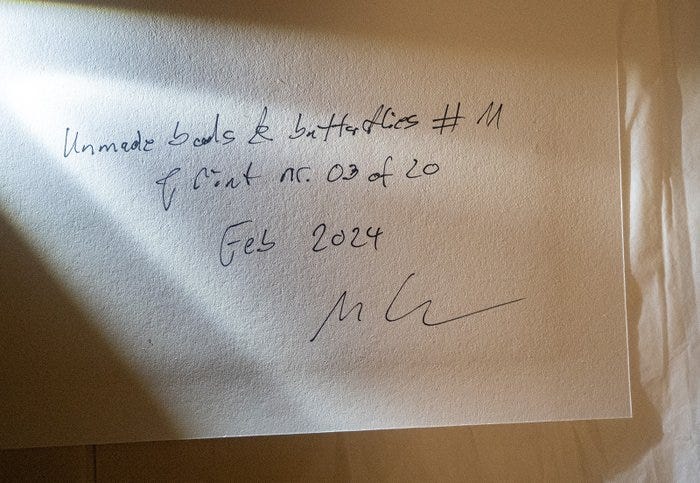 Unmade beds & butterflies # 11
Print nr. 03 of 20
Feb 2024